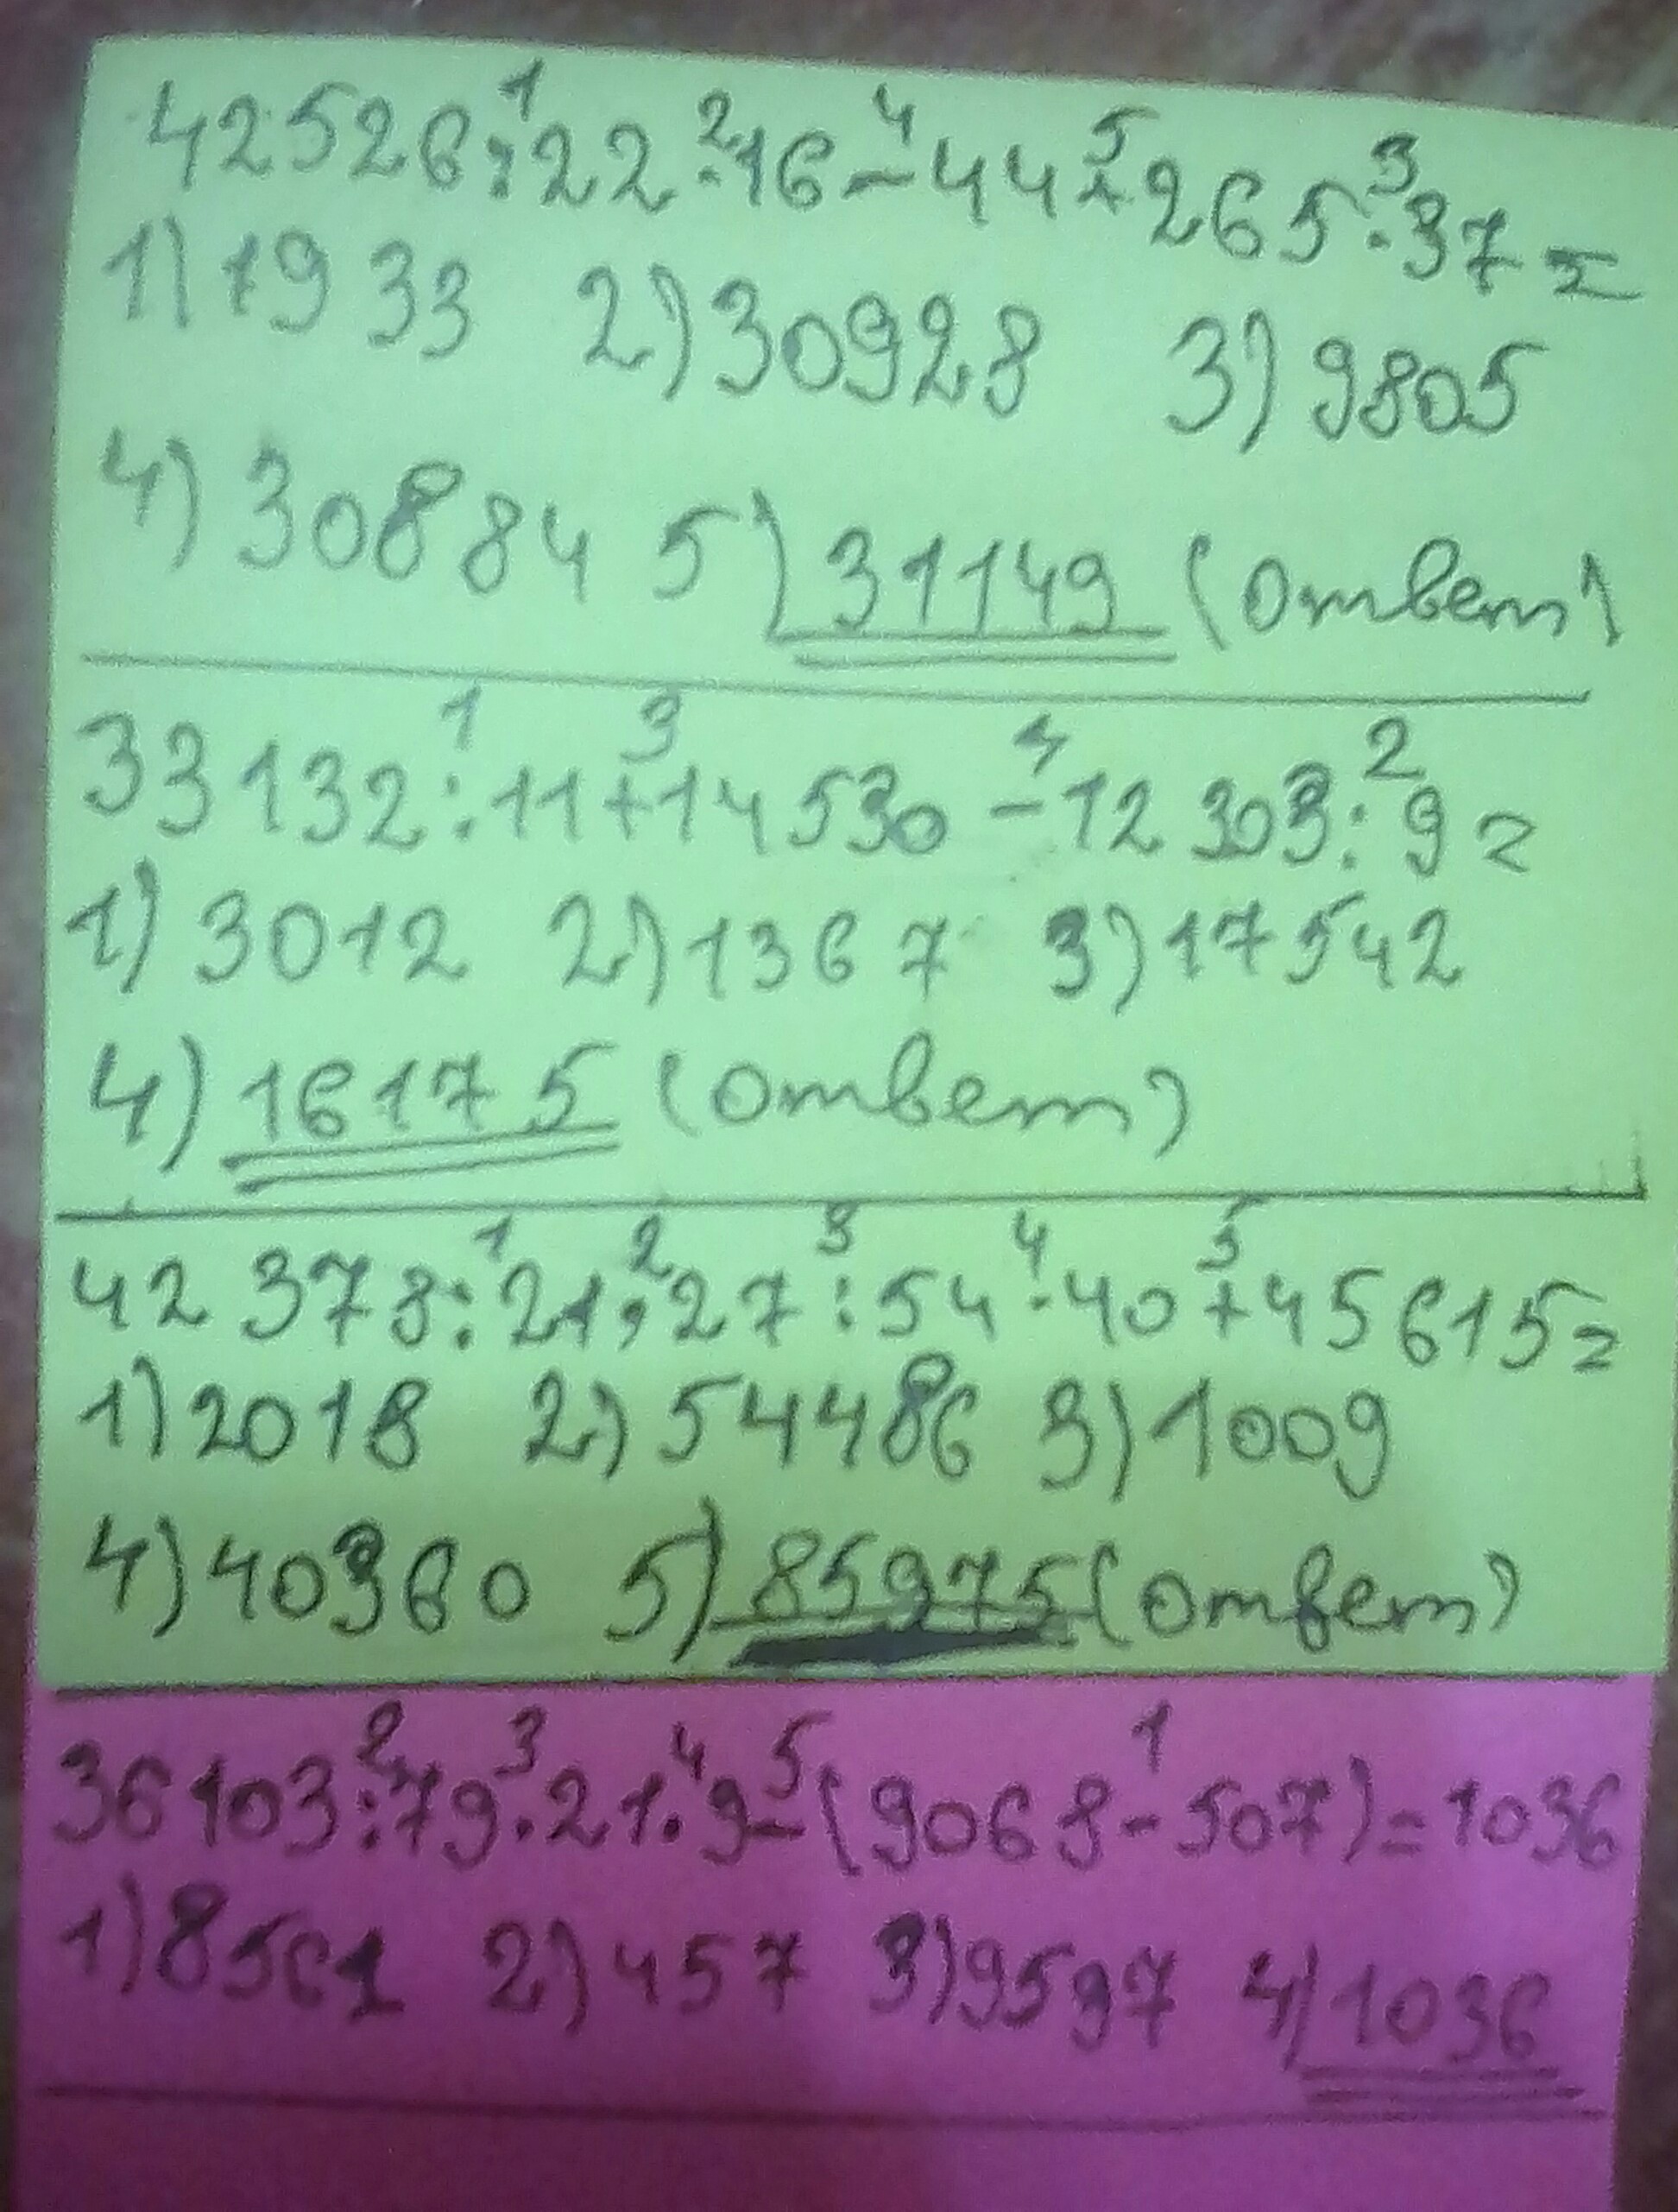 42526:¹22·²16-⁴44+⁵265·³37=
1) 1933 2) 30928 3) 9805
4) 30884 5) 31149 (ответ)
33132:¹11+³14530-⁴12303:²9=
1) 3012 2) 1367 3) 17542
4) 16175 (ответ)
42378:¹21·²27:³54·⁴40+⁵45615=
1) 2018 2) 54486 3) 1009
4) 40360 5) 85975 (ответ)
36103:²79·³21·⁴9-⁵(9068-¹507)=1036
1) 8561 2) 457 3) 9597 4) 1036